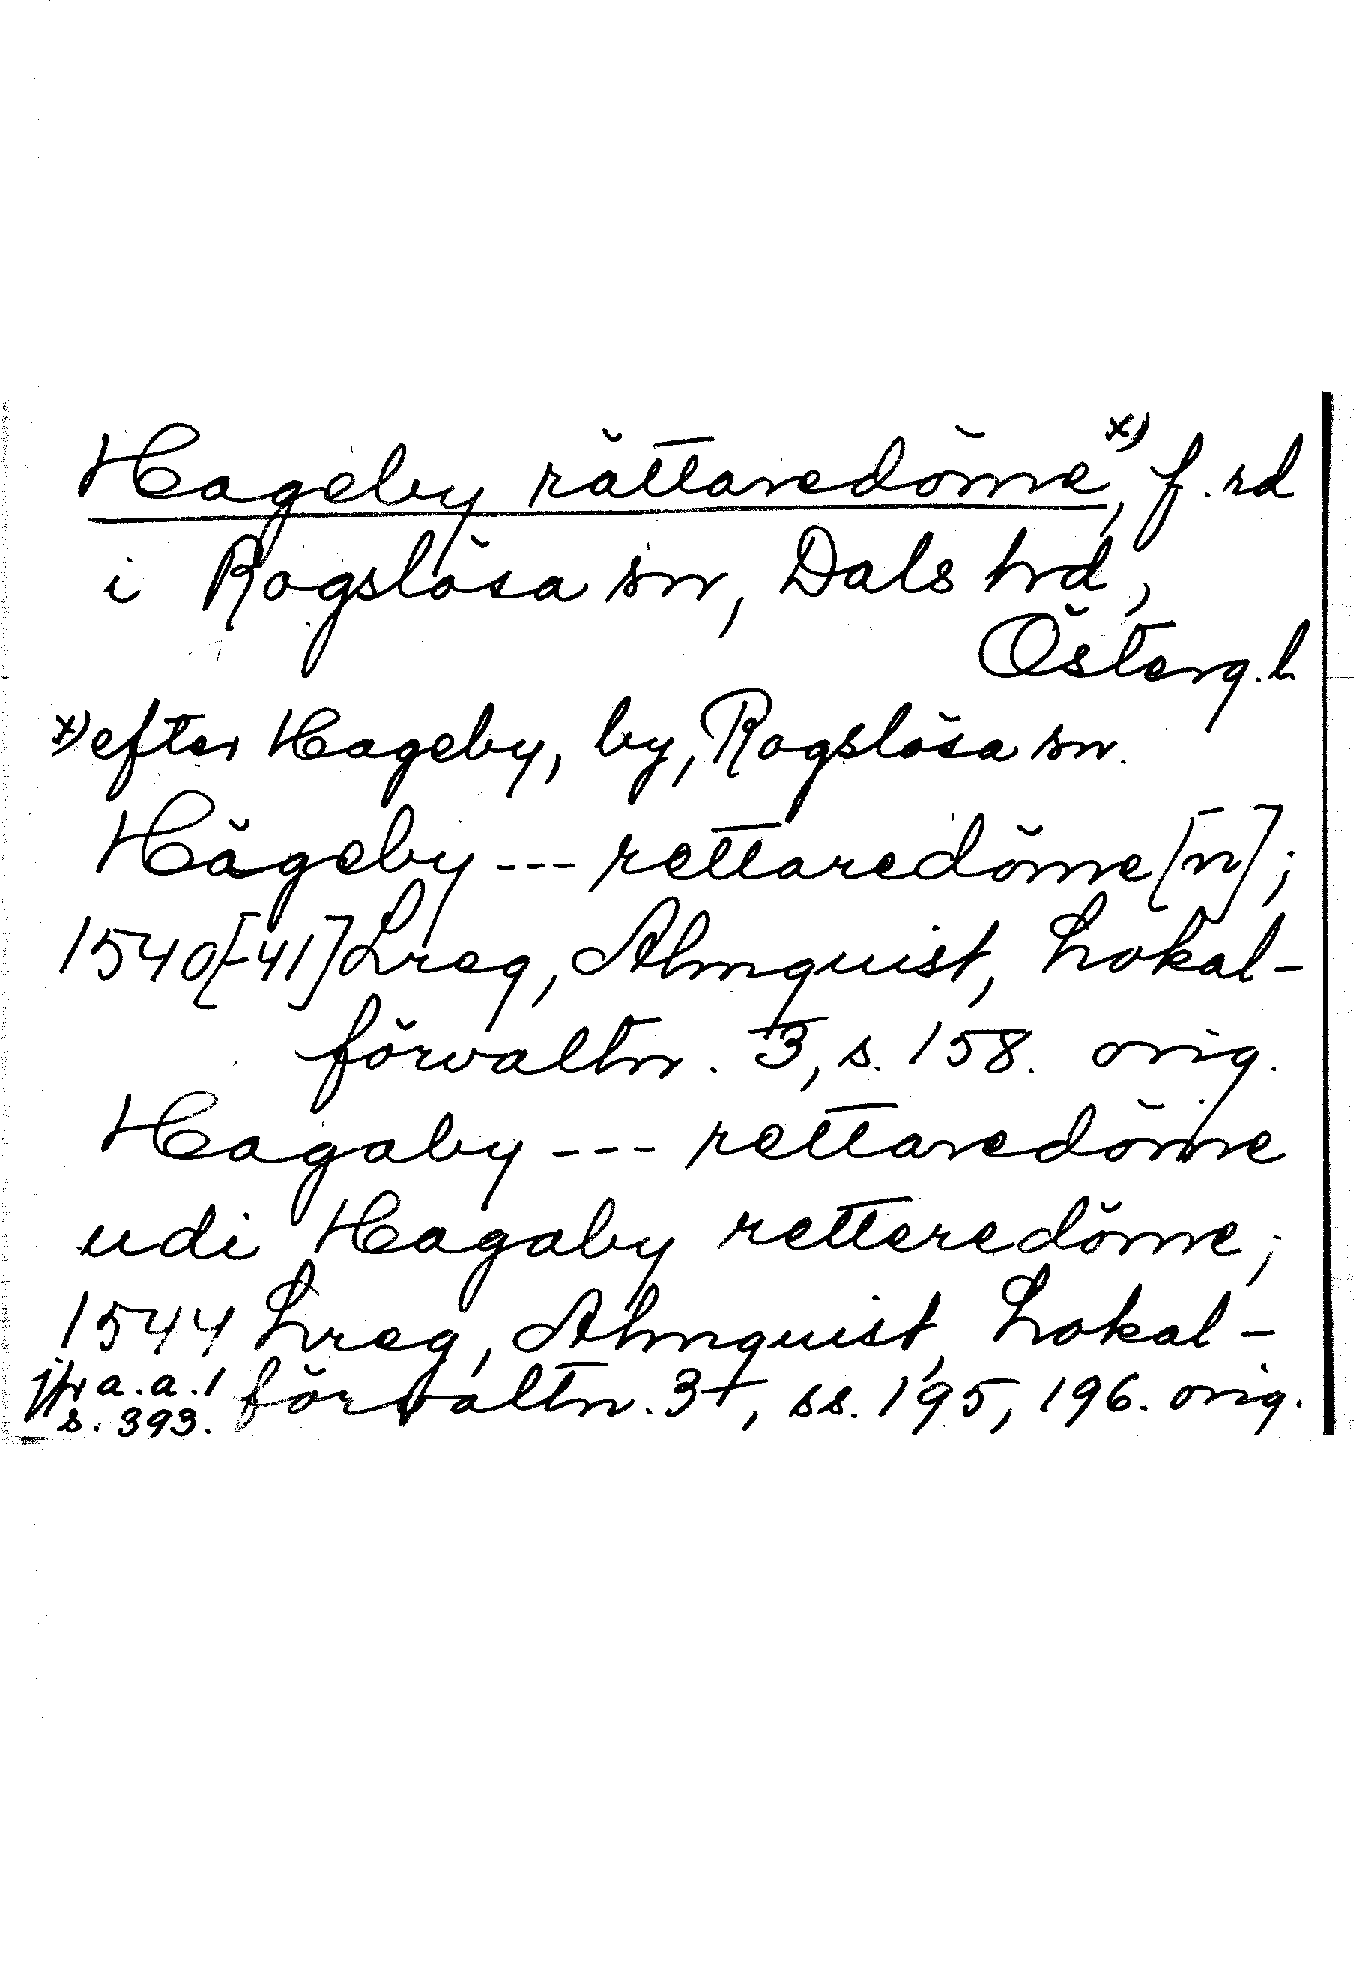 Hageby rättaredöme x), f. rd
i Rogslösa sn, Dals hd,
Österg. l.
x) efter Hageby, by, Rogslösa sn.
Hägeby --- rettaredöme[n];
1540[-41] Lreg, Almquist, Lokal-
förvaltn. 3, s. 158. orig.
Hagaby --- rettaredöme
udi Hagaby retteredöme;
1544 Lreg, Almquist, Lokal-
förvaltn. 3+, ss. 195, 196. orig.
jfr a.a. 1
s. 393.